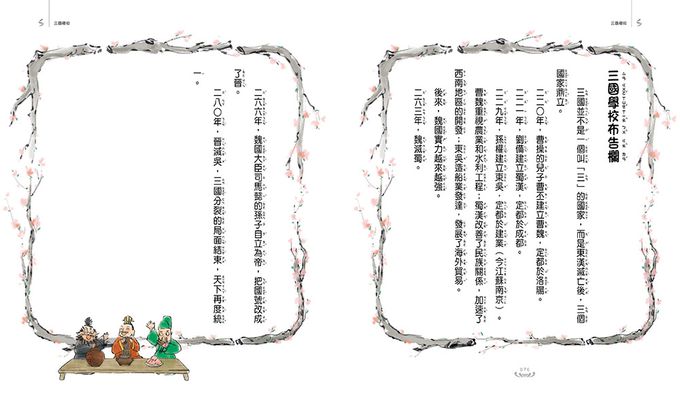 三國學校布告欄
三國並不是一個叫「三」的國家，而是東漢滅亡後，三個
國家鼎立。
二二〇年，曹操的兒子曹丕建立曹魏，定都於洛陽。
二二一年，劉備建立蜀漢，定都於成都。
二二九年，孫權建立東吳，定都於建業（今江蘇南京）。
曹魏重視農業和水利工程；蜀漢改善了民族關係，加速了
西南地區的開發；東吳造船業發達，發展了海外貿易。
後來，魏國實力越來越強。
二六三年，魏滅蜀。
076
二六六年，魏國大臣司馬懿的孫子自立為帝，把國號改成
了晉。
二八〇年，晉滅吳，三國分裂的局面結束，天下再度統
一。